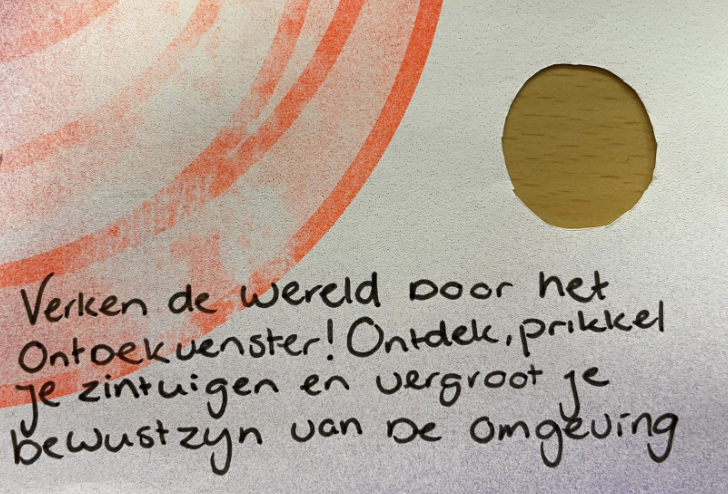 Verken de wereld door het
Ontdekvenster! Ontdek, prikkel
je zintuigen en vergroot je
bewustzijn van de omgeving